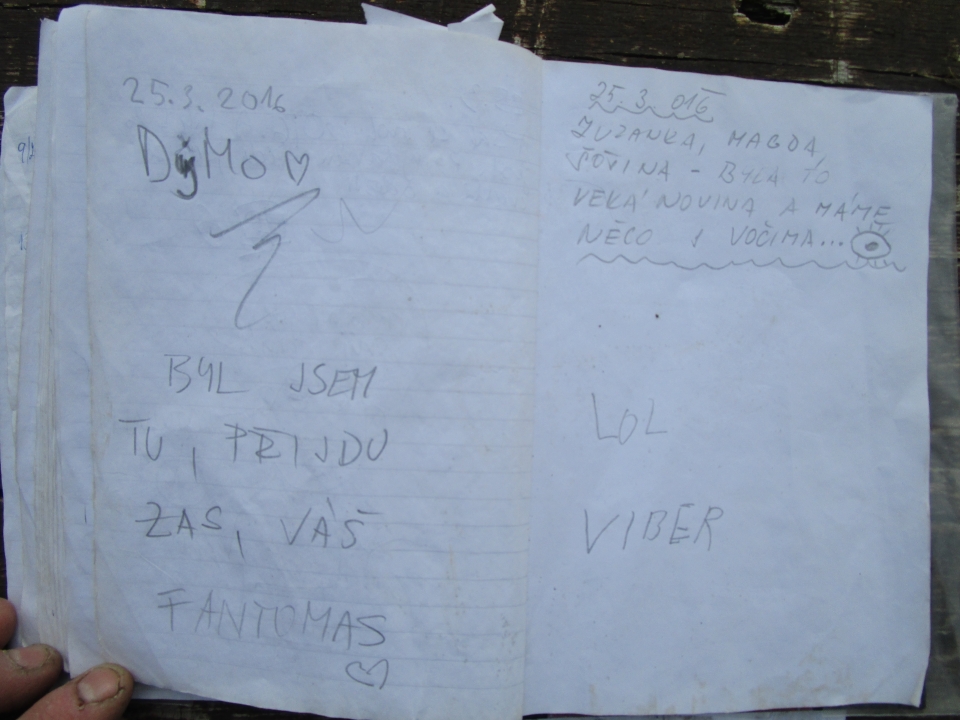 25.3. 2016
DýMo
BYL JSEM
TU, PŘIJDU
ZAS, VÁŠ
FANTOMAS
25.3. 016
ZUZANKA, MAGDA,
ŠÓŠINA - BYLA TO
VEKÁ NOVINA A MÁME
NĚCO S VOČIMA...
LOL
VIBER